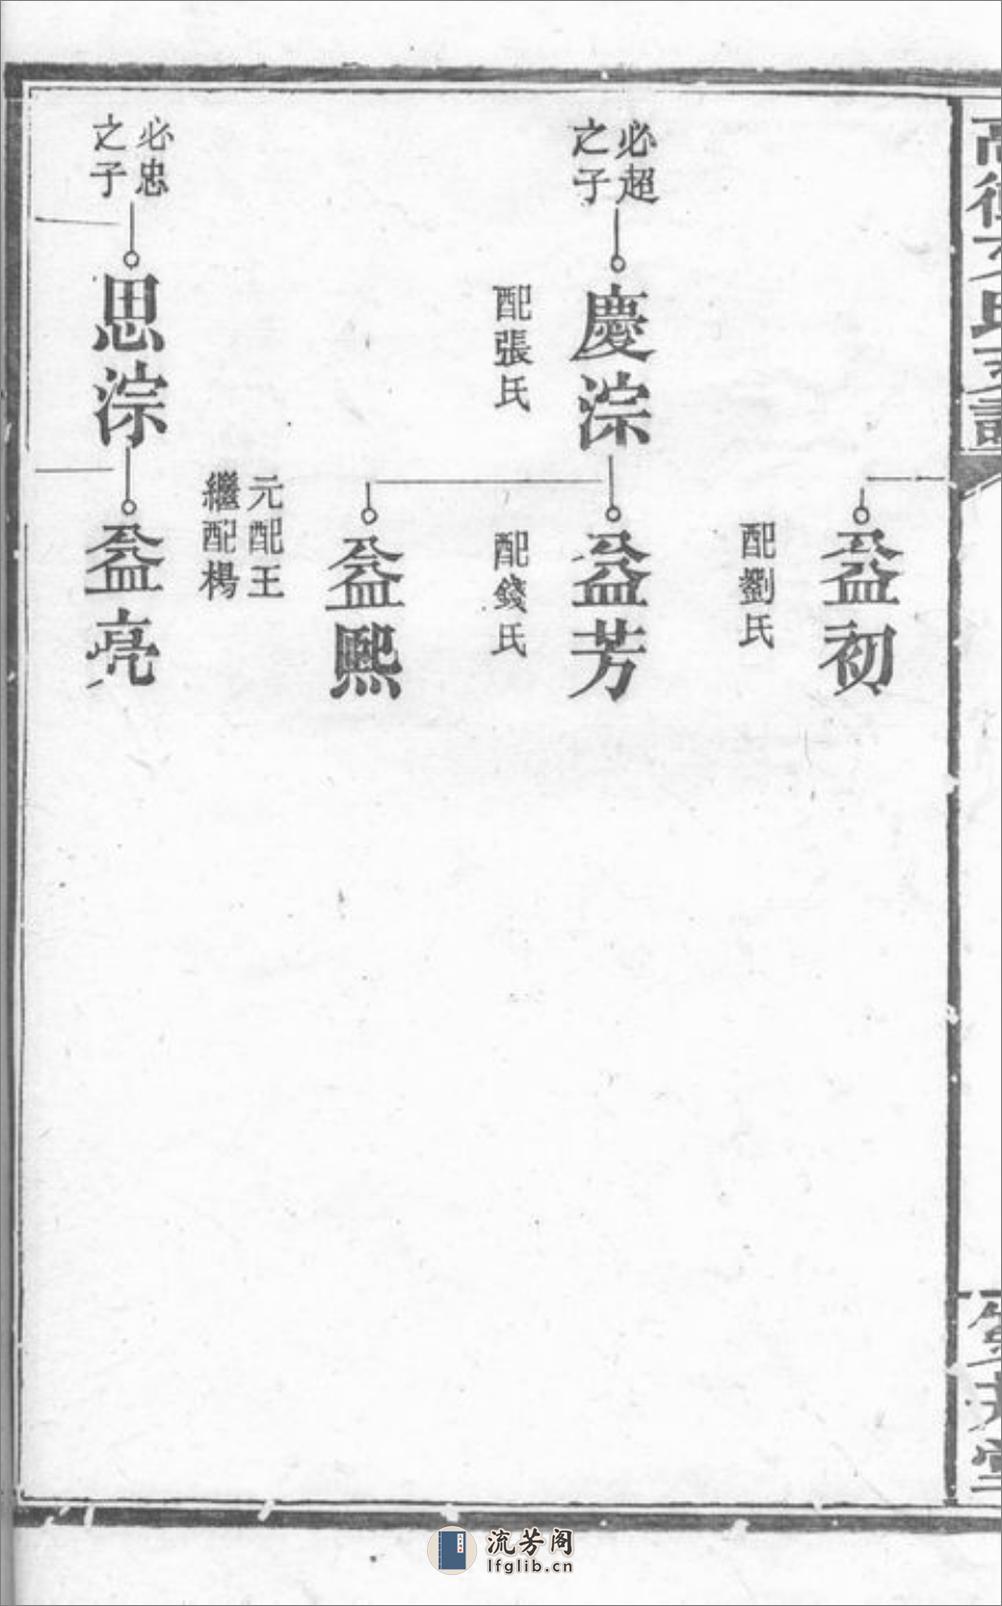 益初
配劉氏
必超
之子
慶淙
益芳
配張氏
配錢氏
益熙
元配王
繼配楊
必忠
之子
思淙
益亮
流芳阁
lfglib.cn